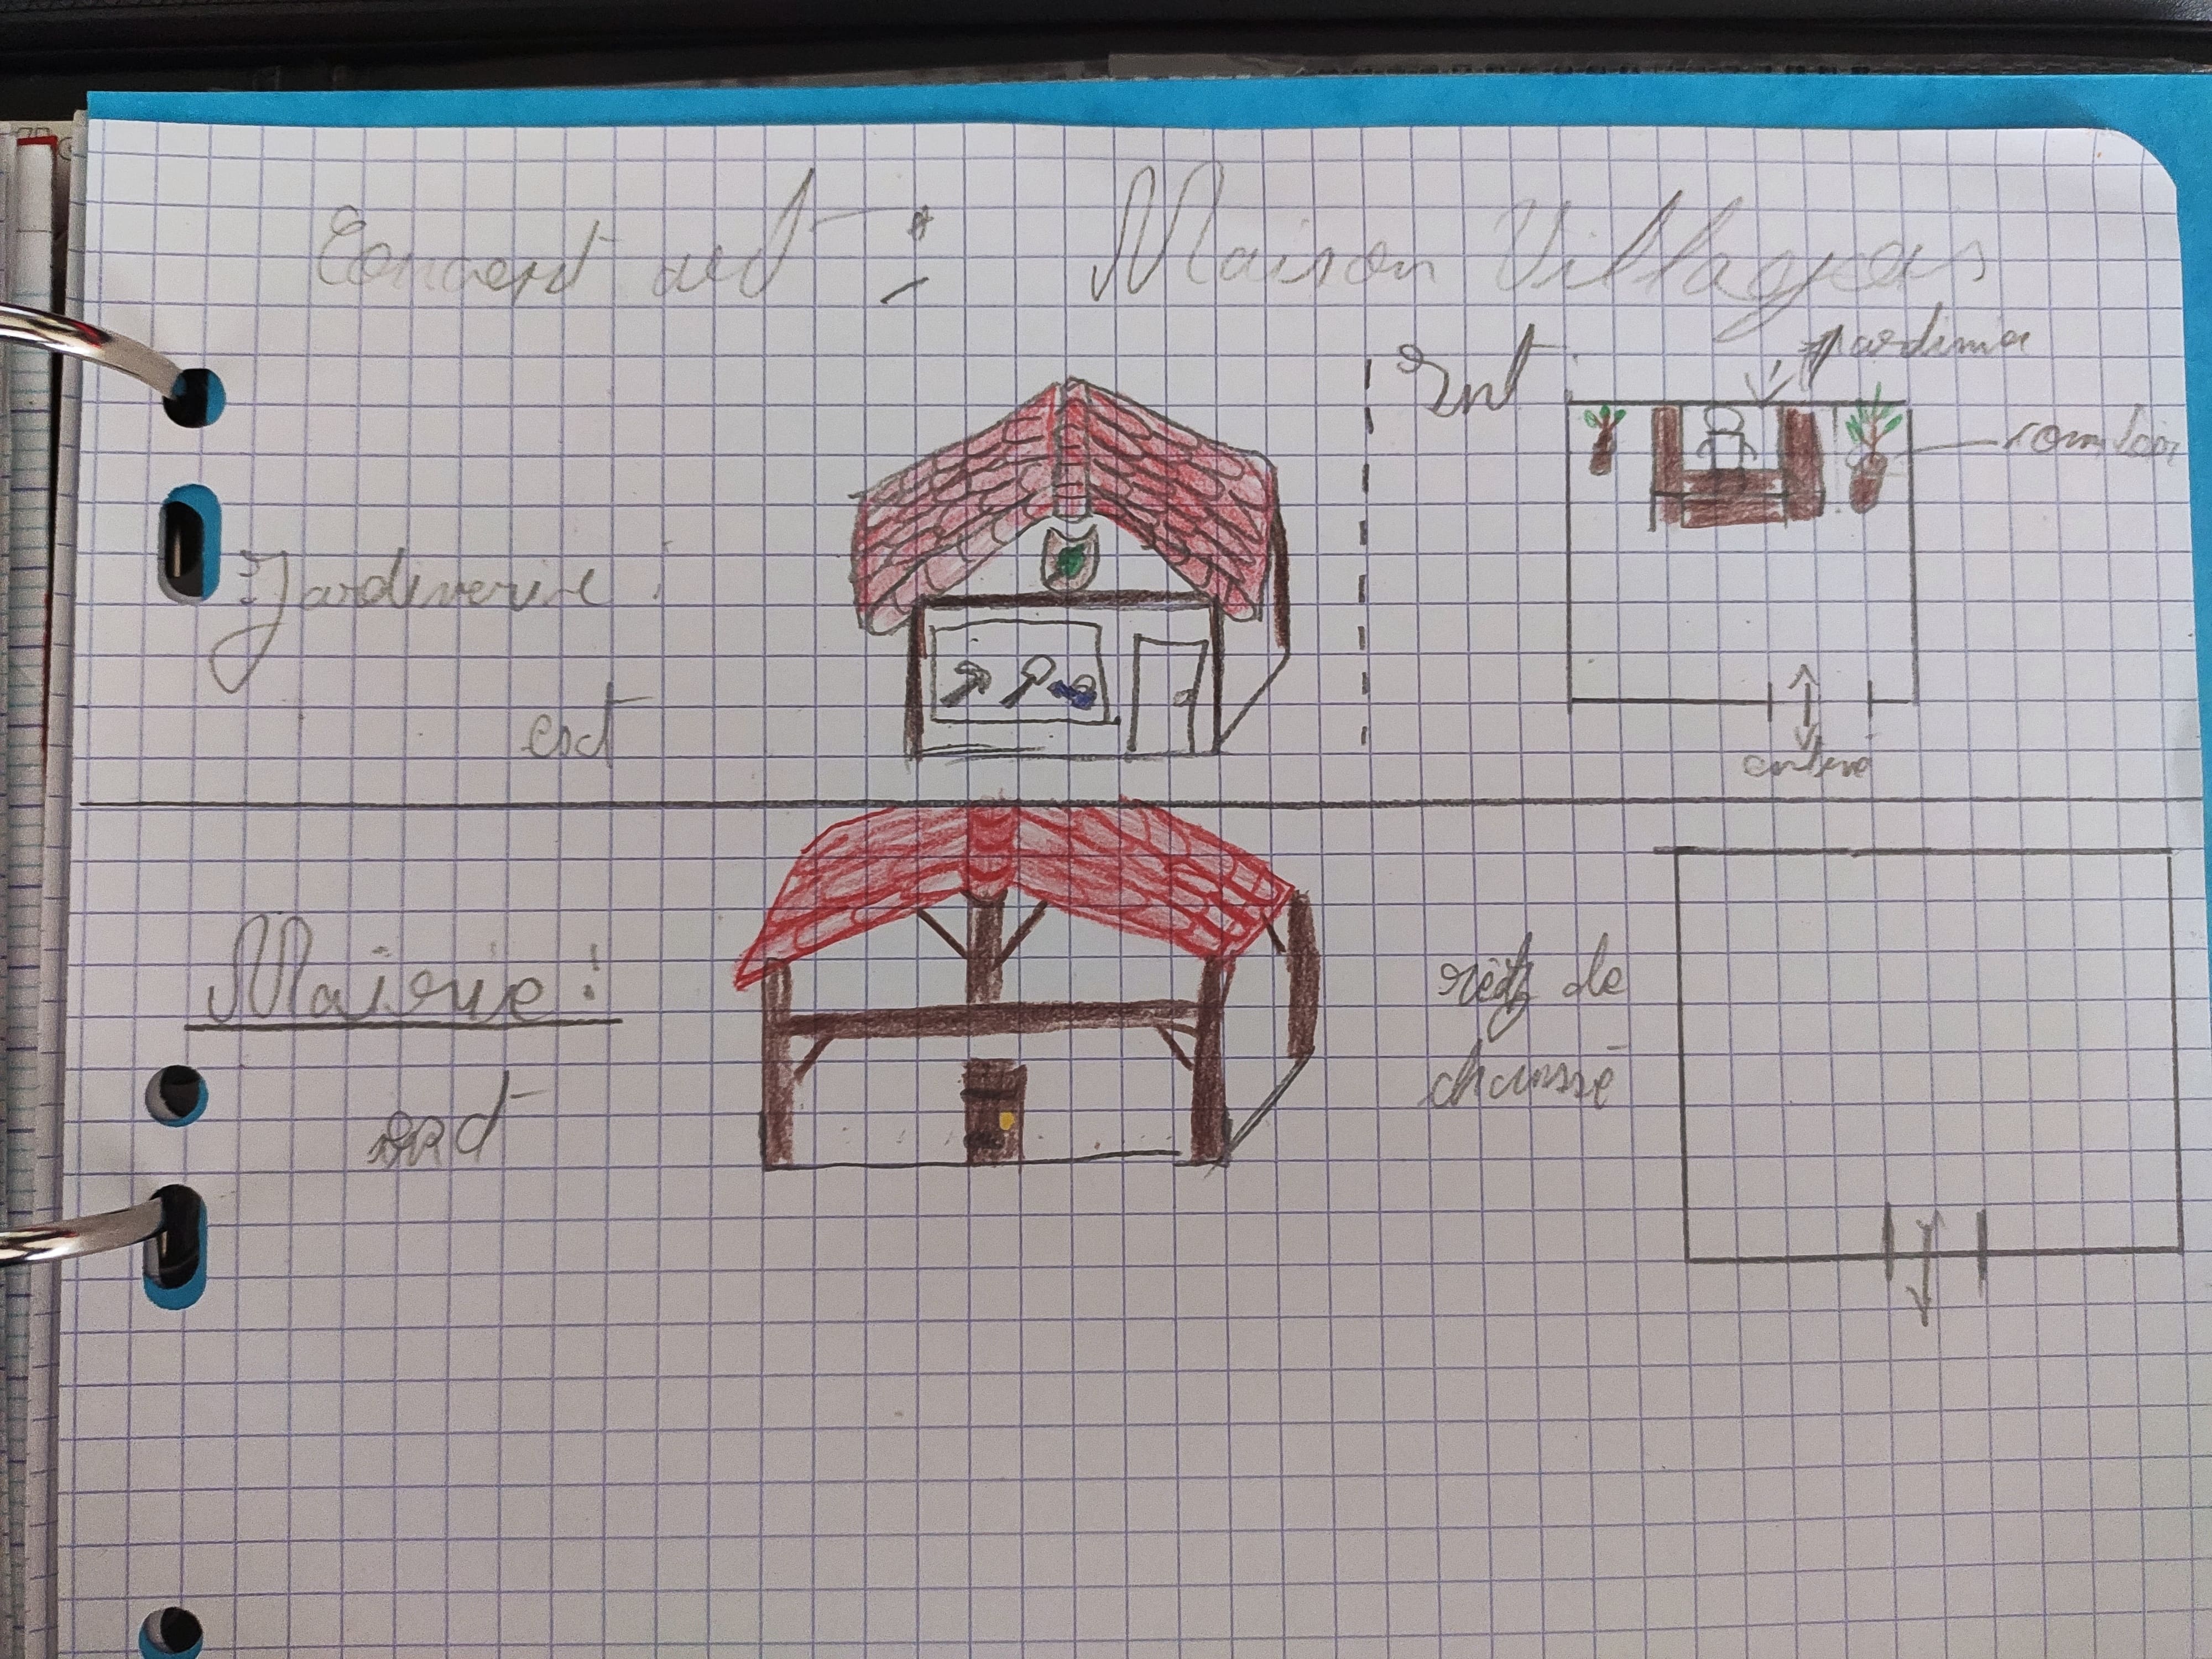 Concept art :
Maison Villageois
Jardinerie :
ext
int :
jardinier
comptoir
entrée
Mairie :
ext
rèz de
chaussé